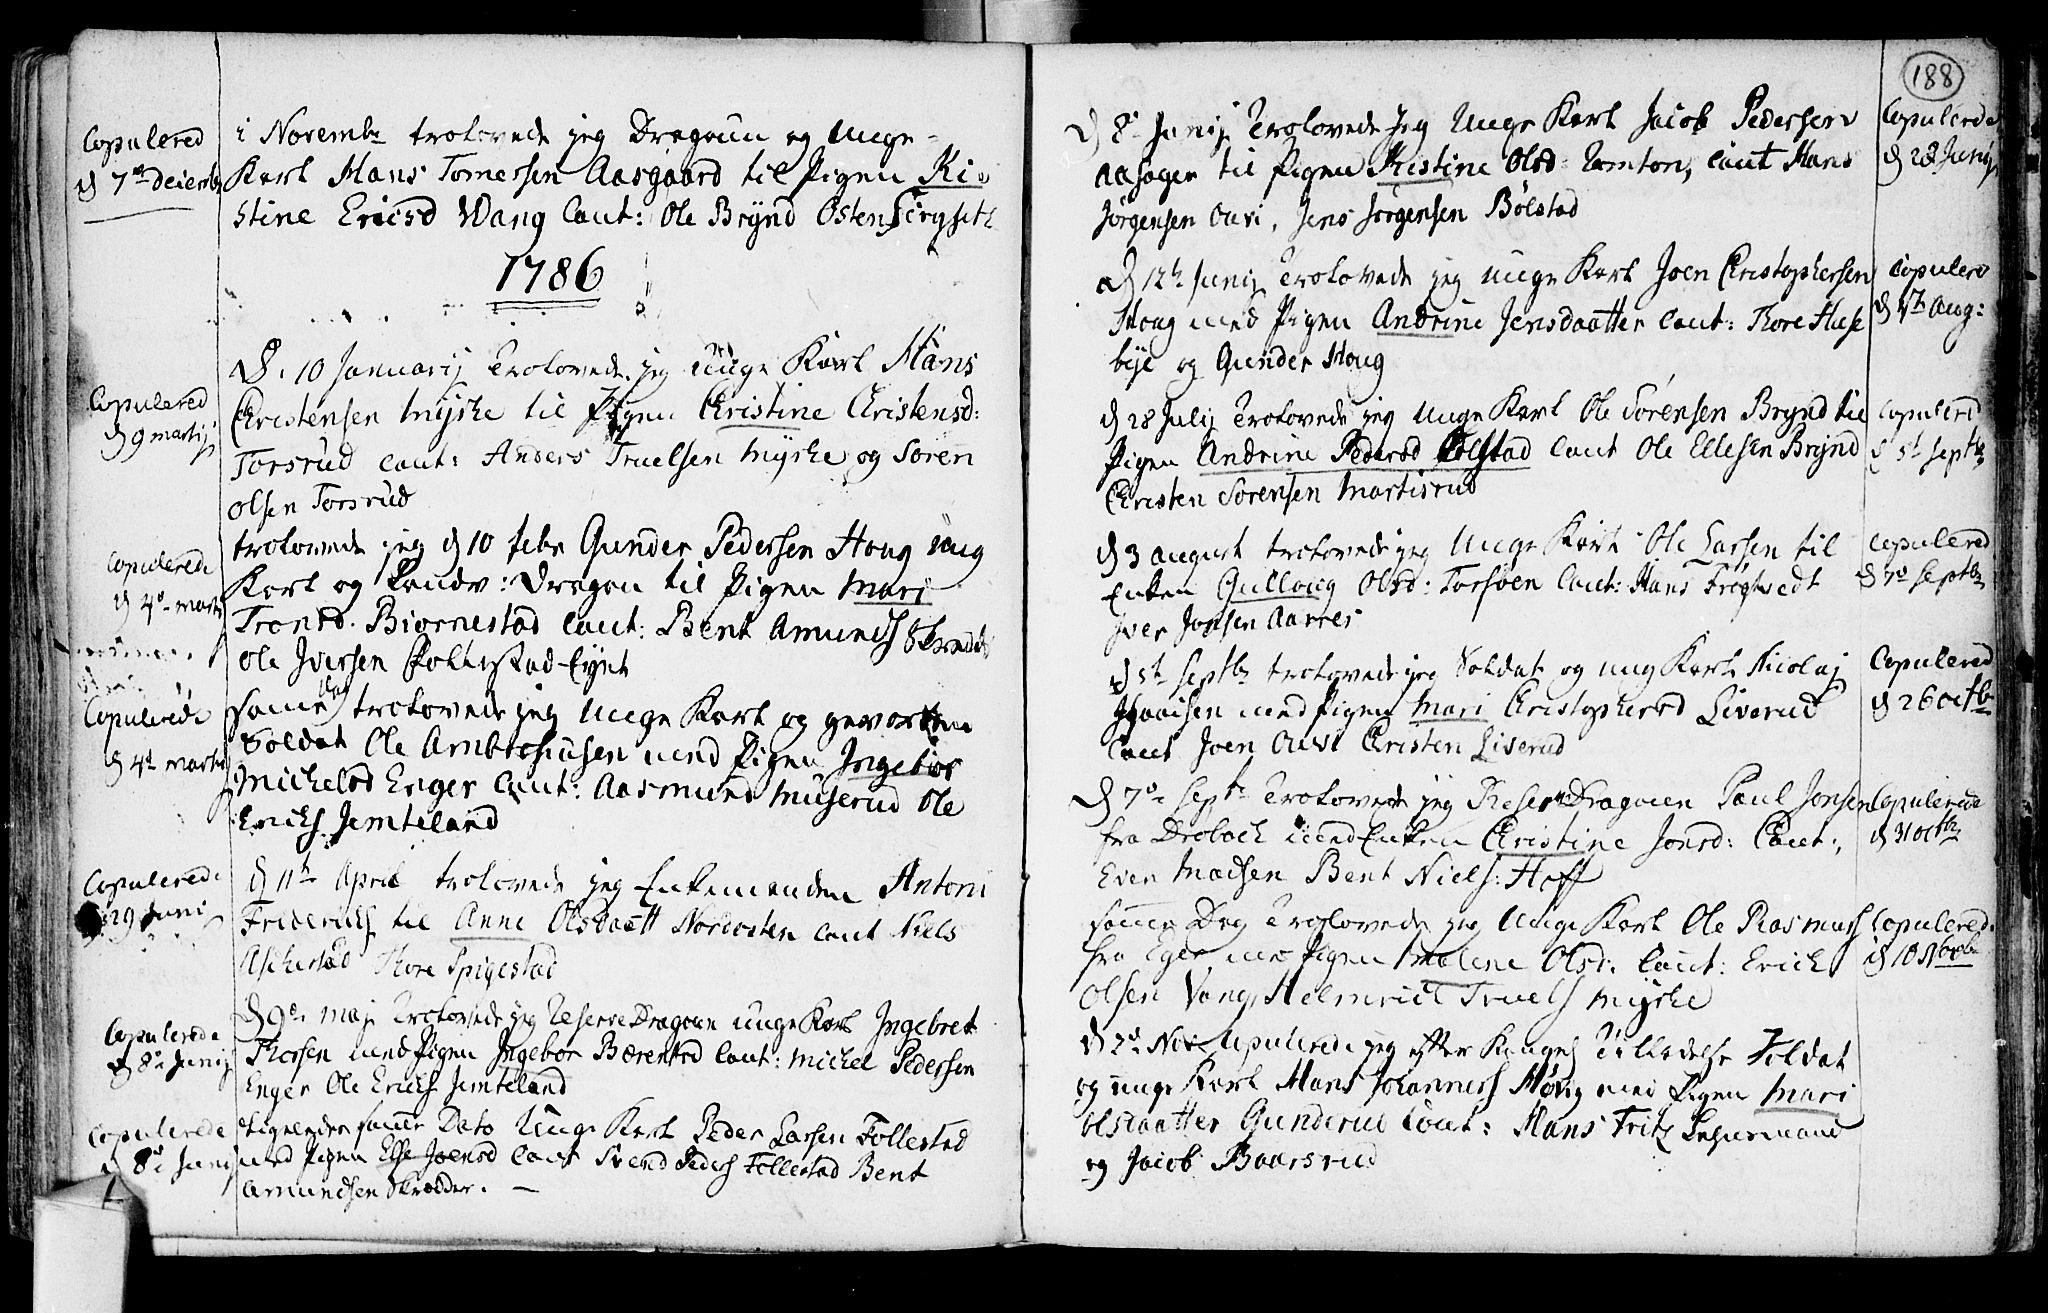 Copulered
d 7de decembr
i Novembr trolovede jeg Dragoun og Unge
Karl Hans Tomersen Aasgaard til Pigen Ki-
stine Ericsd Wang Caut: Ole Brynd Osten
1786
Copulered
d 9 martij
D. 10 Januarij Trolovede jeg unge Karl Hans
Christensen Myrhe til Pigen Christine Christensd:
Torsrud caut: Anders Truelsen Myrhe og Søren
Olsen Torsrud
Copulerede
d 4de marti
trolovede jeg d 10 febr Gunder Pedersen Houg ung
Karl og Landv: Dragon til Pigen Mari
Tronsd. Biornestad Caut: Bent Amunds
Ole Iversen
Copulerede
d 4de marti
samme Dag trolovede jeg Unge Karl og gevorben
Soldat Ole Ambrosiusen med Pigen Ingebor
Michelsd Enger Caut: Aasmund Muserud Ole
Erichs Jemteland
Copulerede
29 Juni
d 11te April trolovede jeg Enkemanden Anton
Friderichs til Anne Olsdaatt Nordosten caut Niels
Askestad Thore Spigestad
Copulerede
d 8de Junij
D 9de Maji Trolovede jeg Reserve Dragoun unge Karl Ingebret
Thorsen med Pigen Ingebor Bærentsd Caut: Michel Pedersen
Enger Ole Erichs Jemteland
Copulerede
d 8de Junij
ligeledes samme Dato Unge Karl Peder Larsen Follestad
med Pigen Else Joensd caut Svend Peders Follestad Bent
Amundsen Skræder. —
188
D 8de Junij Trolovede Jeg Unge Karl Jacob Pedersen
Aasager til Pigen Kristine Olsd: Tomton, Caut Hans
Jørgensen Ouvi, Jens Jørgensen Bølstad
Copulerede
d 28 Junij
D 12te Junij Trolovede jeg unge Karl Joen Christophersen
Houg med Pigen Andrine Jensdaatter Caut: Thore Huse
bye og Gunder Houg
Copulere
d 17de Aug:
d 28 Julij Trolovede jeg Unge Karl Ole Sørensen Brynd til
Pigen Andrine Pedersd Kolstad Caut Ole Ellesen Brynd
Christen Sørensen Martisrud
Copulered
d 5te Septbr
d 3 August trolovede jeg Unge Karl Ole Larsen til
Enken Gulloug Olsd: Torsøen Caut: Hans Frøghvedt
Iver Jonsen Aarnes
Copulered
d 7de Septbr
d 5te Septbr trolovede jeg Soldat og ung Karl Nicolaj
Isaaisen med Pigen Mari Christophersd Liverud
Caut Joen Ouvi Christen Liverud
Copulered
d 26 octbr
D 7de Septr Trolovede jeg Reserve Dragoun Paul Jonsen
fra Drobach med Enken Christine Jonsd: Caut:,
Even Madsen Bent Niels: Hoff
Copulerede
d 31 octbr
samme Dag Trolovede jeg Unge Karl Ole Rasmuss
fra Eger med Pigen Malene Olsd: Caut: Erich
Olsen Vang, Helmrich Truels Myrhe
Copulered.
d 10 Novbr
D 2de Nov Copulerede jeg efter Kongel Tilladelse Soldat
og unge Karl Hans Johanness Høvig med Pigen Mari
Olsdaatter Gunderud Caut: Hans Fritz
og Jacob Baarsrud